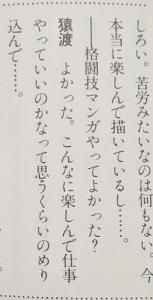 しろい。苦労みたいなのは何もない。今
本当に楽しんで描いているし……。
――格闘技マンガやってよかった？
猿渡　よかった。こんなに楽しんで仕事
やっていいのかなって思うくらいのめり
込んで……。